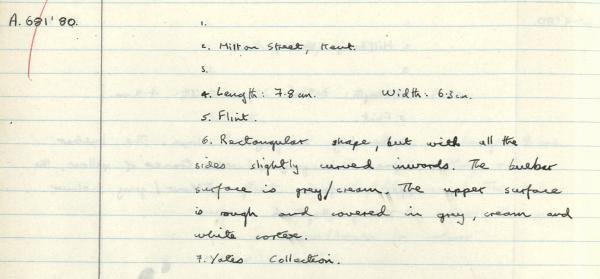 A.681'80.
1.
2. Milton Street, Kent.
3.
4. Length: 7.8 cm. Width: 6.3 cm.
5. Flint.
6. Rectangular shape, but with all the
sides slightly curved inwards. The bulbar
surface is grey/cream. The upper surface
is rough and covered in grey, cream and
white cortex.
7. Yates Collection.